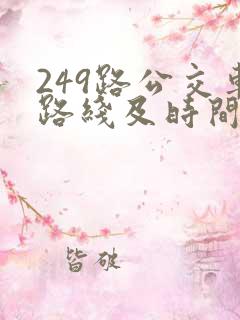 249路公交車
路綫及時間
皆破